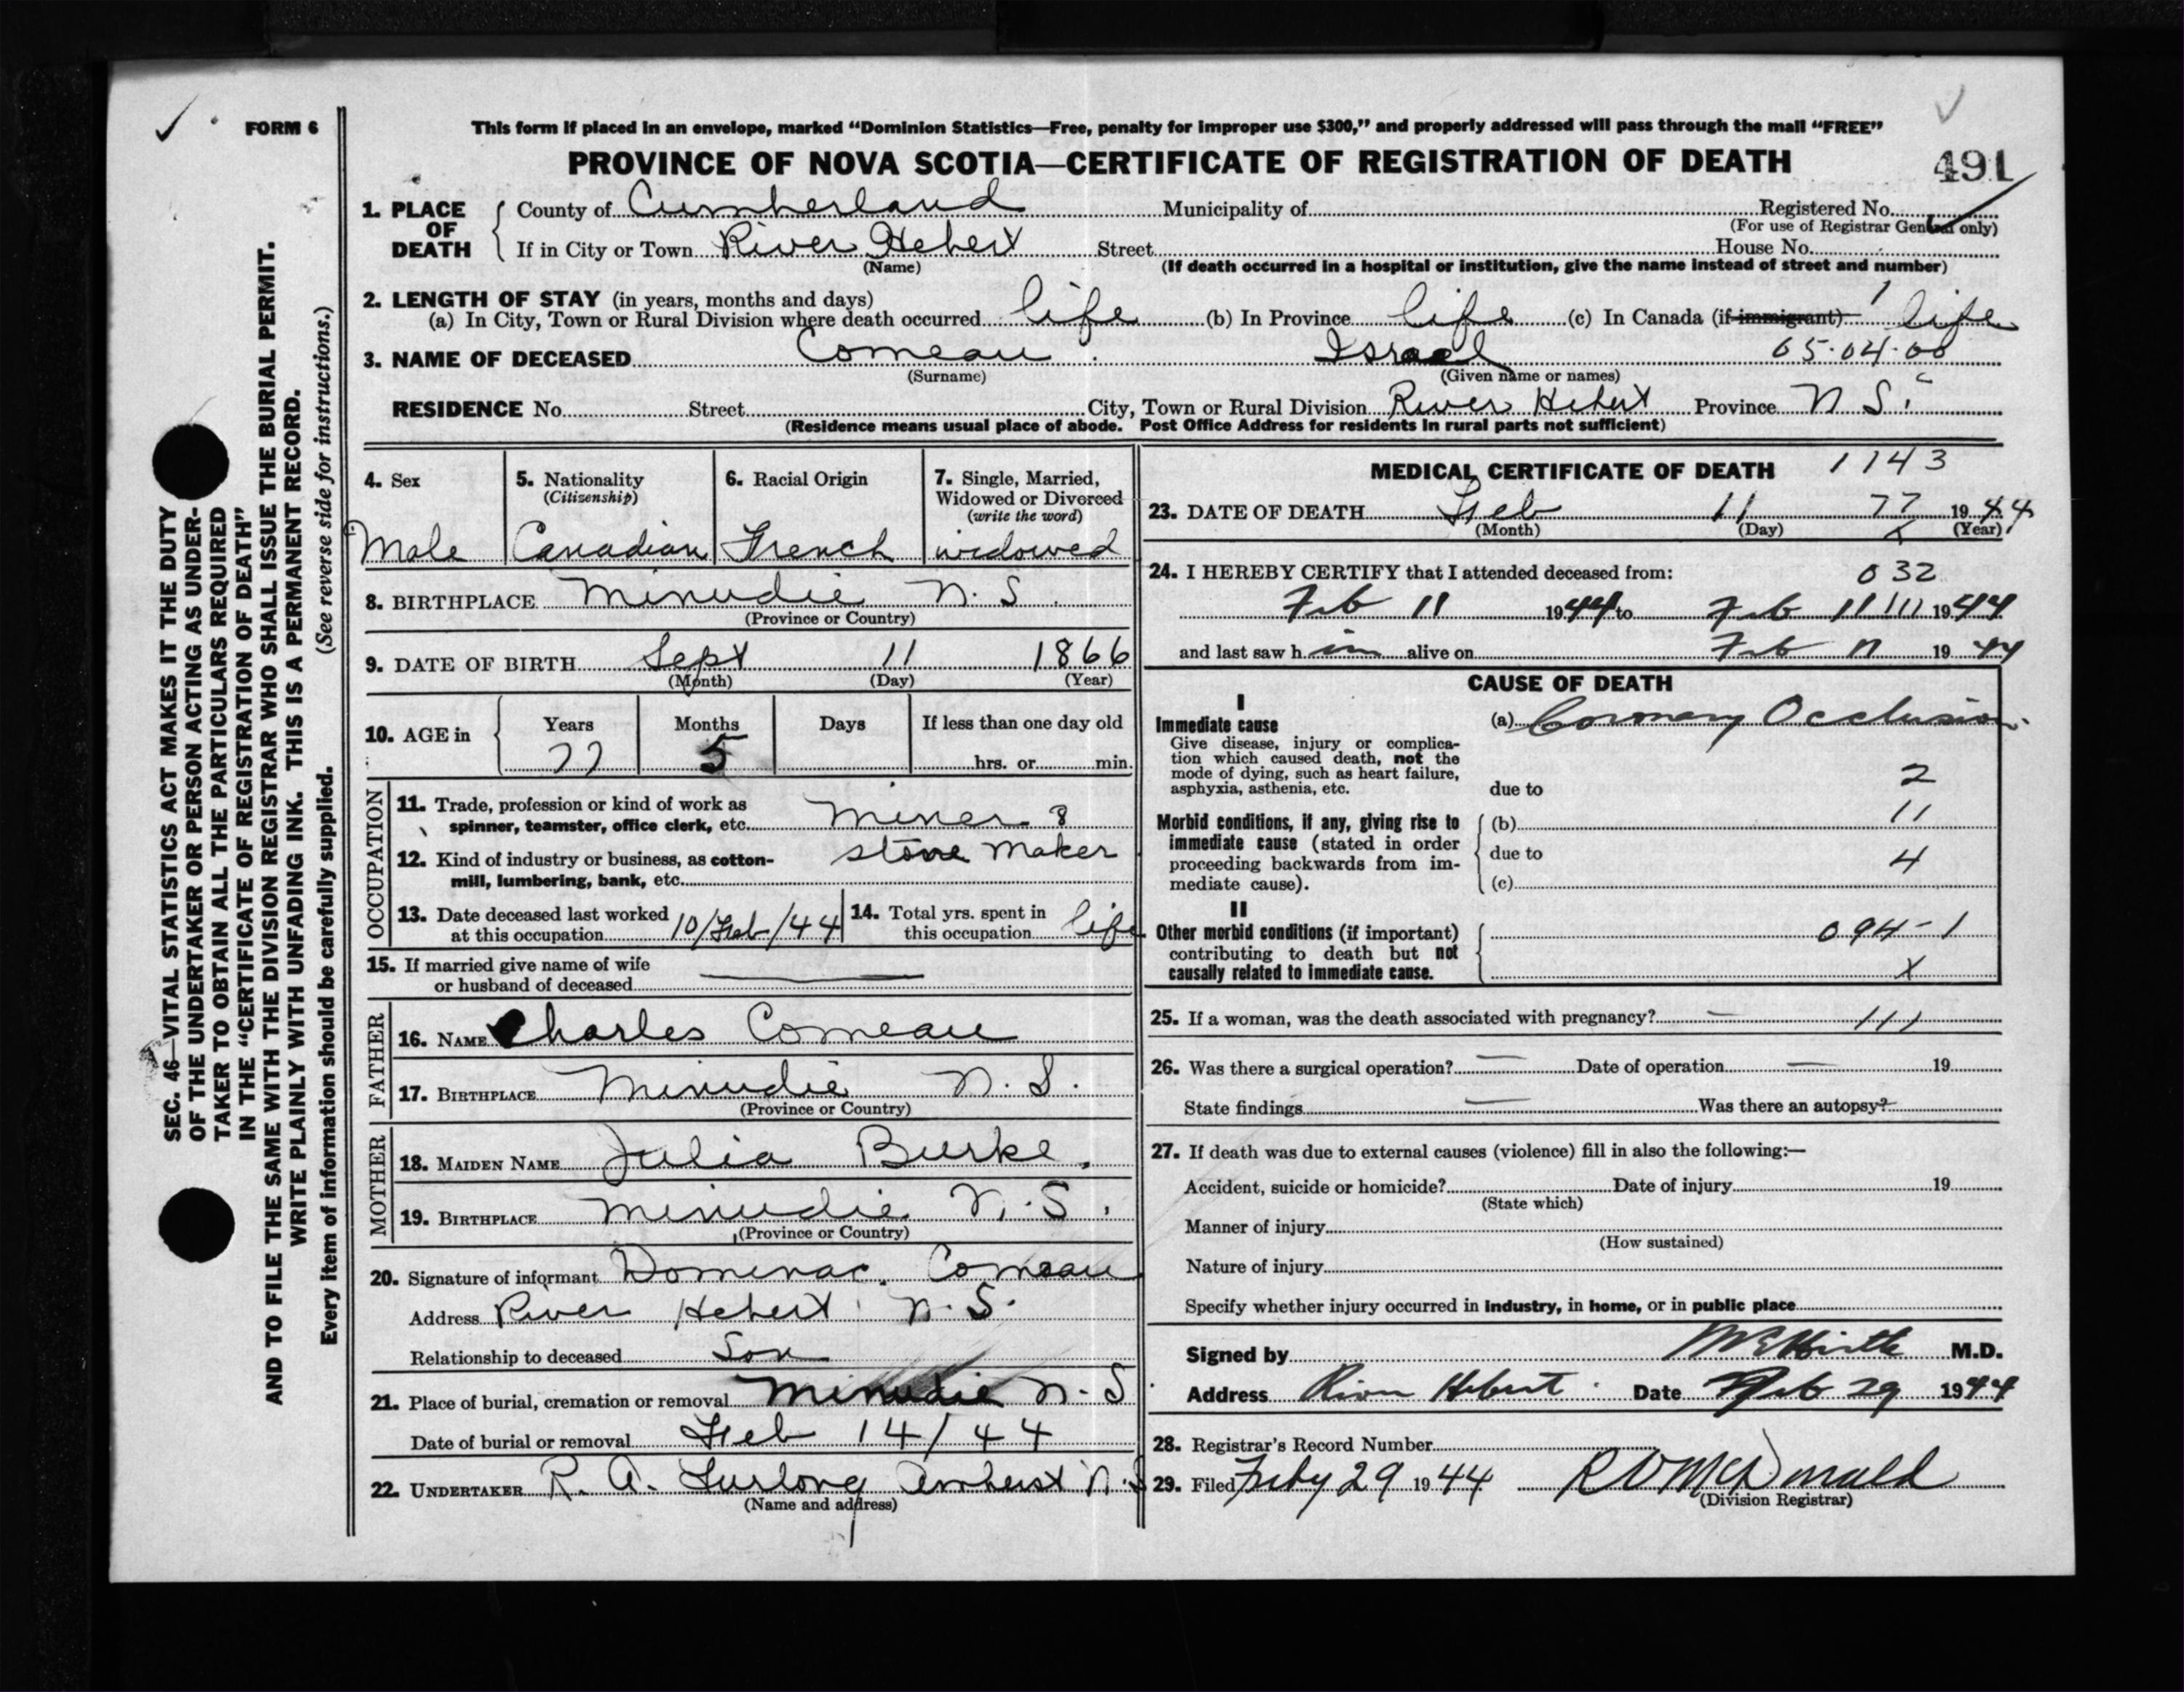 FORM 6
This form if placed in an envelope, marked “Dominion Statistics—Free, penalty for improper use $300,” and properly addressed will pass through the mail “FREE”
PROVINCE OF NOVA SCOTIA—CERTIFICATE OF REGISTRATION OF DEATH
491
1. PLACE OF DEATH
County of Cumberland Municipality of Registered No.
(For use of Registrar General only)
If in City or Town River Hebert Street House No.
(Name) (If death occurred in a hospital or institution, give the name instead of street and number)
2. LENGTH OF STAY (in years, months and days)
(a) In City, Town or Rural Division where death occurred life (b) In Province life (c) In Canada (if immigrant) life
3. NAME OF DECEASED Comeau Israel 05·04·00
(Surname) (Given name or names)
RESIDENCE No. Street City, Town or Rural Division River Hebert Province N S.
(Residence means usual place of abode. Post Office Address for residents in rural parts not sufficient)
4. Sex
Male
5. Nationality
(Citizenship)
Canadian
6. Racial Origin
French
7. Single, Married,
Widowed or Divorced
(write the word)
widowed
8. BIRTHPLACE Minudie N. S.
(Province or Country)
9. DATE OF BIRTH Sept 11 1866
(Month) (Day) (Year)
10. AGE in
Years Months Days If less than one day old
77 5 hrs. or min.
OCCUPATION
11. Trade, profession or kind of work as
spinner, teamster, office clerk, etc. Miner &
12. Kind of industry or business, as cotton- stone maker
mill, lumbering, bank, etc.
13. Date deceased last worked
at this occupation 10/Feb/44
14. Total yrs. spent in
this occupation life
15. If married give name of wife
or husband of deceased
FATHER
16. NAME Charles Comeau
17. BIRTHPLACE Minudie N. S.
(Province or Country)
MOTHER
18. MAIDEN NAME Julia Burke.
19. BIRTHPLACE Minudie N. S.
(Province or Country)
20. Signature of informant Dominac. Comeau
Address River Hebert N. S.
Relationship to deceased Son
21. Place of burial, cremation or removal Minudie N. S
Date of burial or removal Feb 14/44
22. UNDERTAKER R. A. Furlong Amherst N. S
(Name and address)
MEDICAL CERTIFICATE OF DEATH 1143
23. DATE OF DEATH Feb 11 77 1944
(Month) (Day) (Year)
24. I HEREBY CERTIFY that I attended deceased from: 032
Feb 11 1944 to Feb 11 111 1944
and last saw h im alive on Feb 11 1944
CAUSE OF DEATH
I
Immediate cause (a) Coronary Occlusion.
Give disease, injury or complica-
tion which caused death, not the
mode of dying, such as heart failure,
asphyxia, asthenia, etc.
due to 2
Morbid conditions, if any, giving rise to
immediate cause (stated in order
proceeding backwards from im-
mediate cause).
(b) 11
due to 4
(c)
II
Other morbid conditions (if important)
contributing to death but not
causally related to immediate cause.
094-1
X
25. If a woman, was the death associated with pregnancy? — 111
26. Was there a surgical operation? — Date of operation — 19
State findings — Was there an autopsy?
27. If death was due to external causes (violence) fill in also the following:—
Accident, suicide or homicide? Date of injury 19
(State which)
Manner of injury
(How sustained)
Nature of injury
Specify whether injury occurred in industry, in home, or in public place
Signed by M.D.
Address River Hebert Date Feb 29 1944
28. Registrar's Record Number
29. Filed Feby 29 1944 McDonald
(Division Registrar)
SEC. 46—VITAL STATISTICS ACT MAKES IT THE DUTY
OF THE UNDERTAKER OR PERSON ACTING AS UNDER-
TAKER TO OBTAIN ALL THE PARTICULARS REQUIRED
IN THE “CERTIFICATE OF REGISTRATION OF DEATH”
AND TO FILE THE SAME WITH THE DIVISION REGISTRAR WHO SHALL ISSUE THE BURIAL PERMIT.
WRITE PLAINLY WITH UNFADING INK. THIS IS A PERMANENT RECORD.
Every item of information should be carefully supplied. (See reverse side for instructions.)